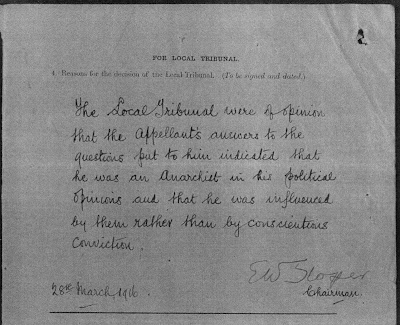 FOR LOCAL TRIBUNAL.
4. Reasons for the decision of the Local Tribunal. (To be signed and dated.)
The Local Tribunal were of opinion
that the Appellant's answers to the
questions put to him indicated that
he was an Anarchist in his political
opinions and that he was influenced
by them rather than by conscientious
conviction.
28th March, 1916.
Chairman.